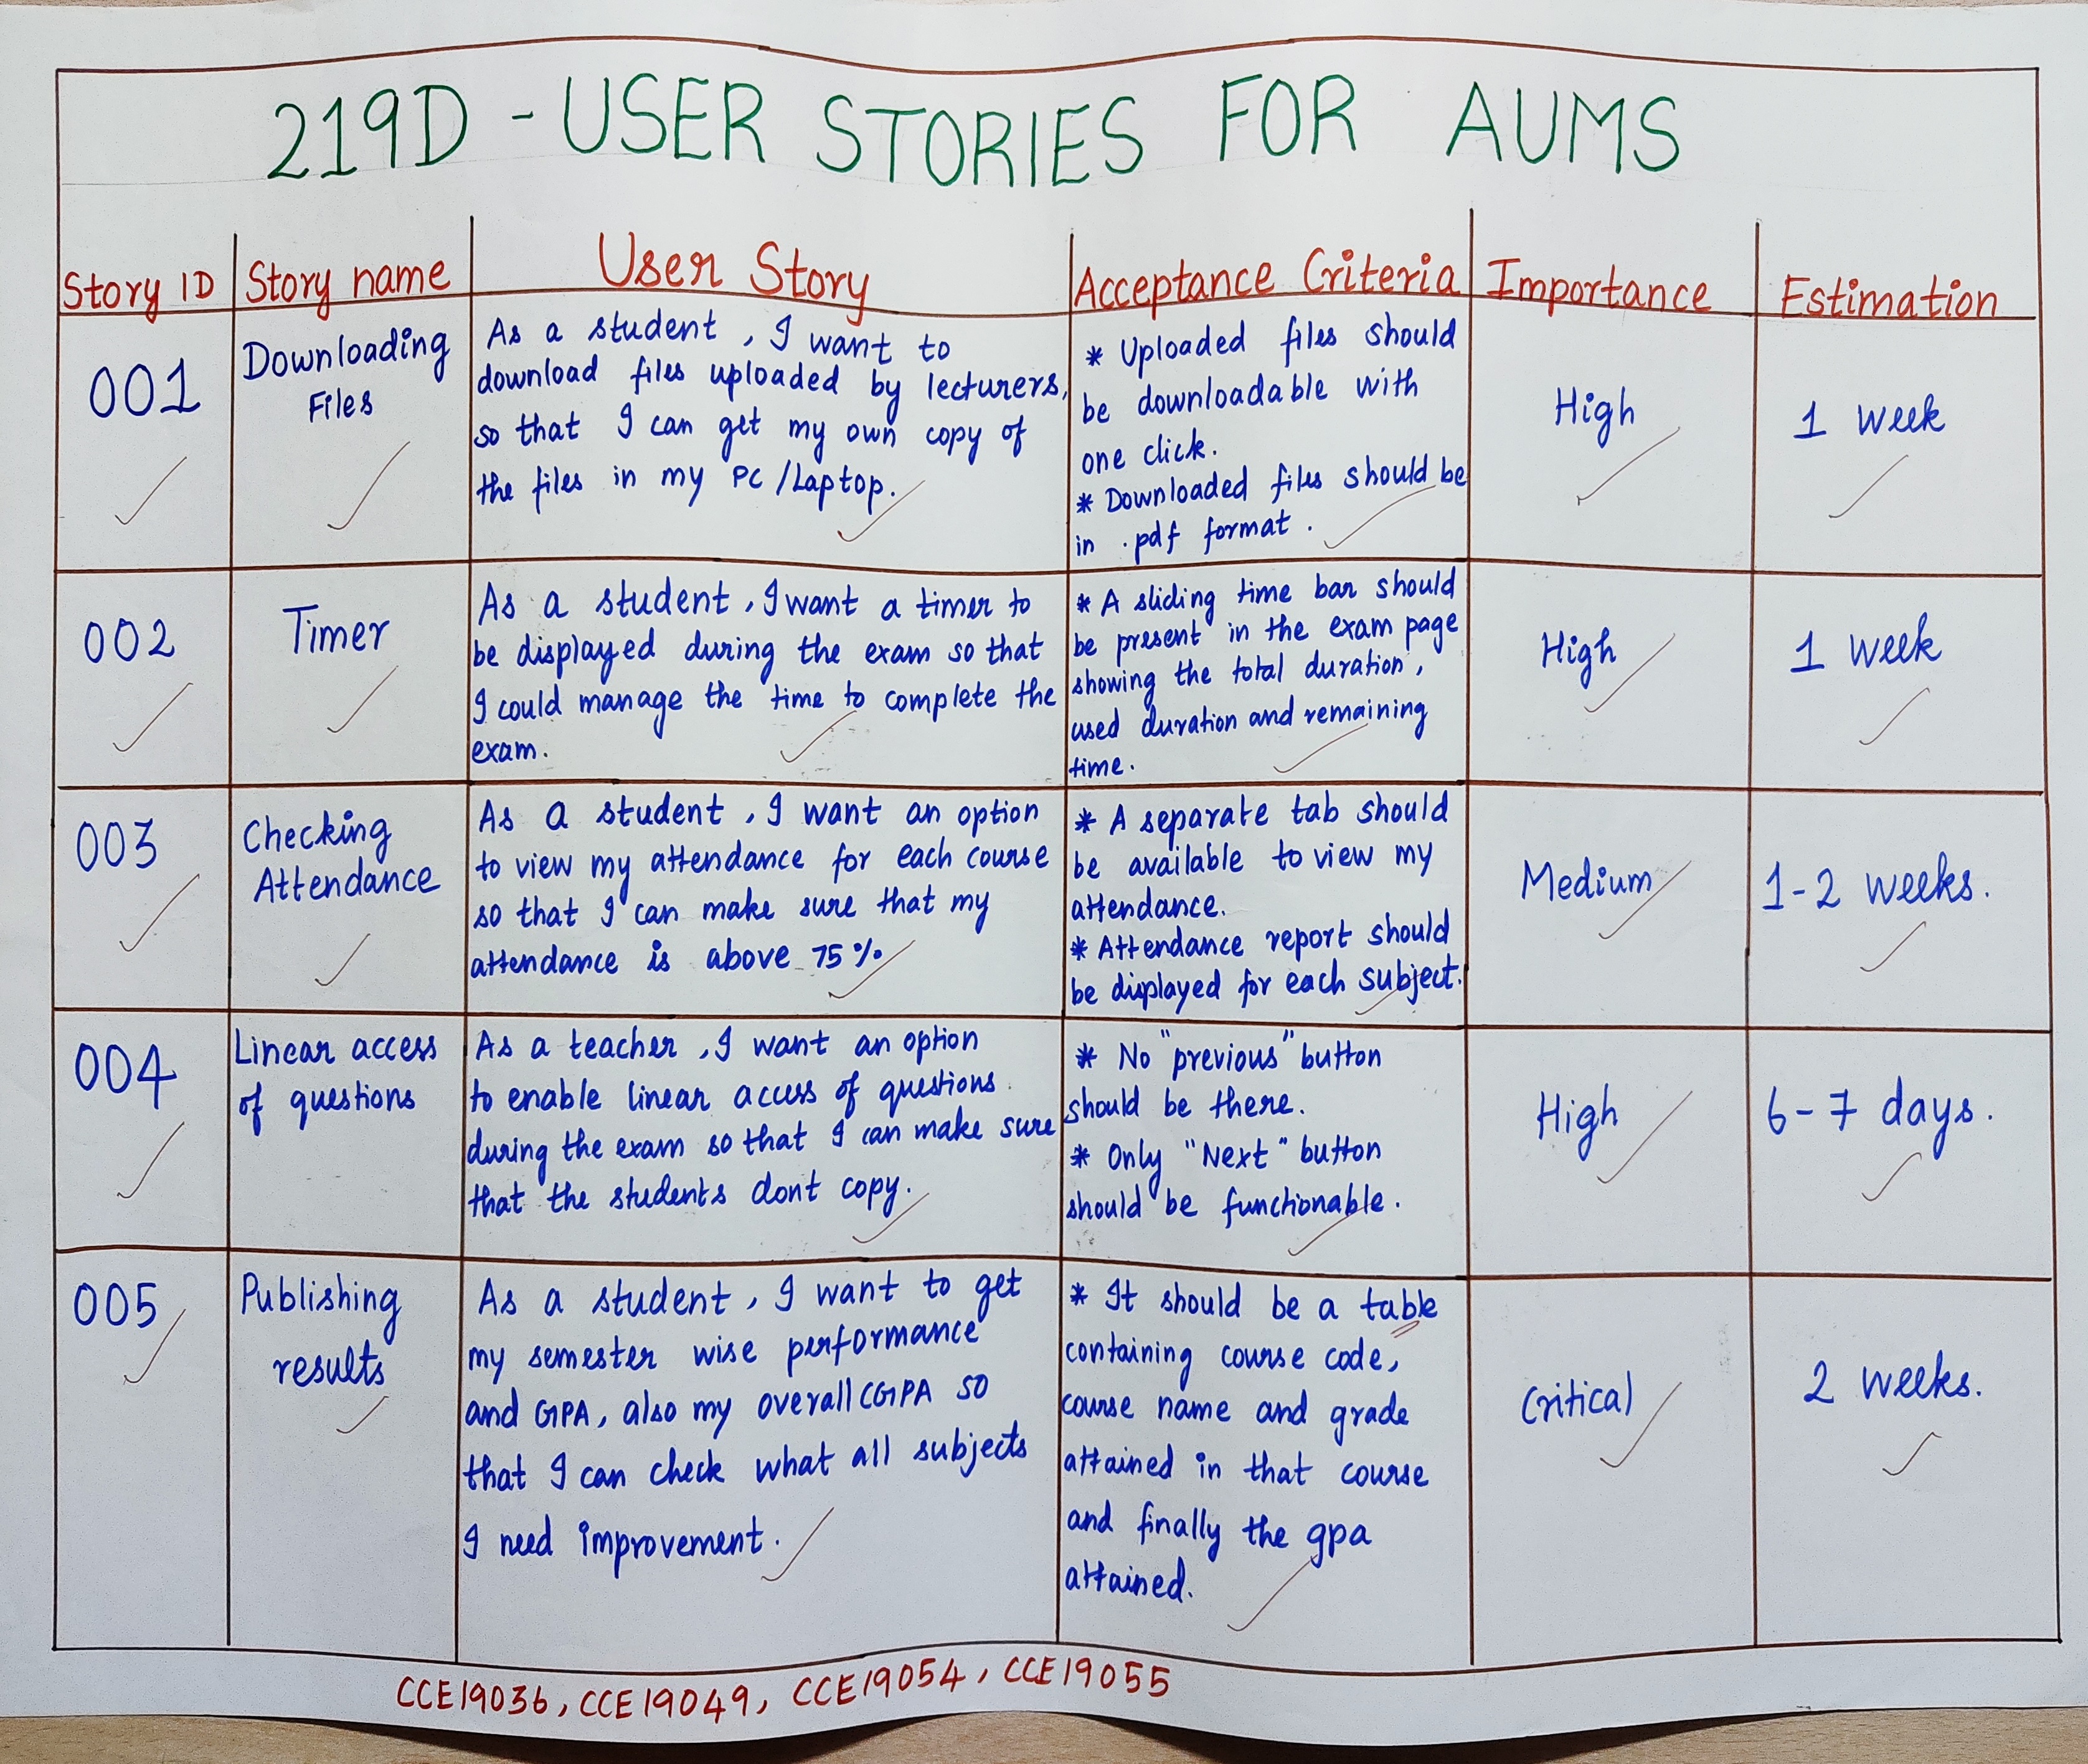 219D - USER STORIES FOR AUMS
Story ID
Story name
User Story
Acceptance Criteria
Importance
Estimation
001
Downloading
Files
As a student, I want to
download files uploaded by lecturers,
so that I can get my own copy of
the files in my PC/Laptop.
* Uploaded files should
be downloadable with
one click.
* Downloaded files should be
in .pdf format.
High
1 week
002
Timer
As a student, I want a timer to
be displayed during the exam so that
I could manage the time to complete the
exam.
* A sliding time bar should
be present in the exam page
showing the total duration,
used duration and remaining
time.
High
1 week
003
Checking
Attendance
As a student, I want an option
to view my attendance for each course
so that I can make sure that my
attendance is above 75%
* A separate tab should
be available to view my
attendance.
* Attendance report should
be displayed for each subject.
Medium
1-2 weeks.
004
Linear access
of questions
As a teacher, I want an option
to enable linear access of questions
during the exam so that I can make sure
that the students dont copy.
* No "previous" button
should be there.
* Only "Next" button
should be functionable.
High
6-7 days.
005
Publishing
results
As a student, I want to get
my semester wise performance
and GPA, also my overall CGPA so
that I can check what all subjects
I need improvement.
* It should be a table
containing course code,
course name and grade
attained in that course
and finally the gpa
attained.
Critical
2 weeks.
CCE19036, CCE19049, CCE19054, CCE19055